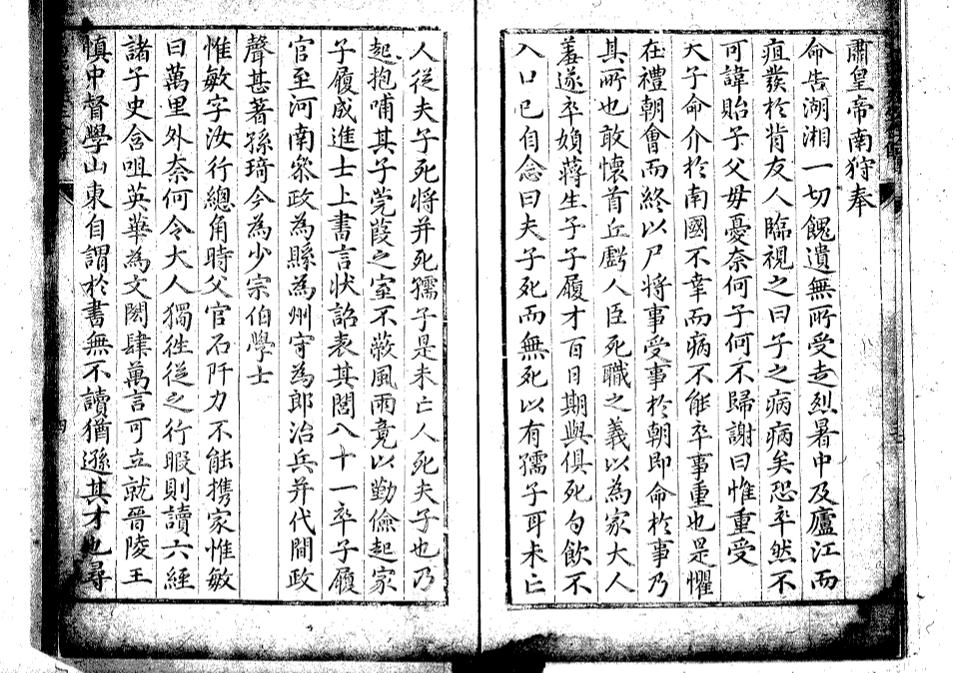 肅皇帝南狩奉
命告湖湘一切餽遺無所受走烈暑中及廬江而
疽發於背友人臨視之曰子之病病矣恐卒然不
可諱貽子父母憂奈何子何不歸謝曰惟重受
大子命介於南國不幸而病不能卒事重也是懼
在禮朝會而終以尸將事受事於朝即命於事乃
其所也敢懷首丘虧人臣死職之義以為家大人
羞遂卒媍蔣生子子履才百日期與俱死勺飲不
入口已自念曰夫子死而無死以有孺子耳未亡
人從夫子死將并死孺子是未亡人死夫子也乃
起抱哺其子莞葭之室不蔽風雨竟以勤儉起家
子履成進士上書言狀詔表其閭八十一卒子履
官至河南叅政為縣為州守為郎治兵并代間政
聲甚著孫琦今為少宗伯學士
惟敏字汝行總角時父官石阡力不能携家惟敏
曰萬里外奈何令大人獨徃從之行暇則讀六經
諸子史含咀英華為文閎肆萬言可立就晉陵王
慎中督學山東自謂於書無不讀猶遜其才也尋